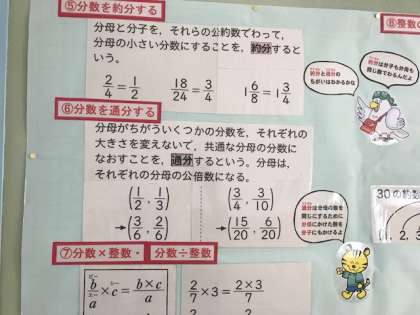 ⑤分数を約分する
分母と分子を，それらの公約数でわって，
分母の小さい分数にすることを，約分すると
いう。
2/4 = 1/2　18/24 = 3/4　1 6/8 = 1 3/4
⑥分数を通分する
分母がちがういくつかの分数を，それぞれの
大きさを変えないで，共通な分母の分数に
なおすことを，通分するという。分母は，
それぞれの分母の公倍数になる。
(1/2, 1/3)　(3/4, 3/10)
→(3/6, 2/6)　→(15/20, 6/20)
⑦分数×整数・分数÷整数
b/a × c = b×c/a
2/7 × 3 = 2×3/7
⑧整数の
約分と通分の
ちがいはわかるかな
約分は分子も分母も
同じ数でわるんだよ
通分は分母の数を
同じにするために
分母にかけた数を
分子にもかけるよ
30の約数